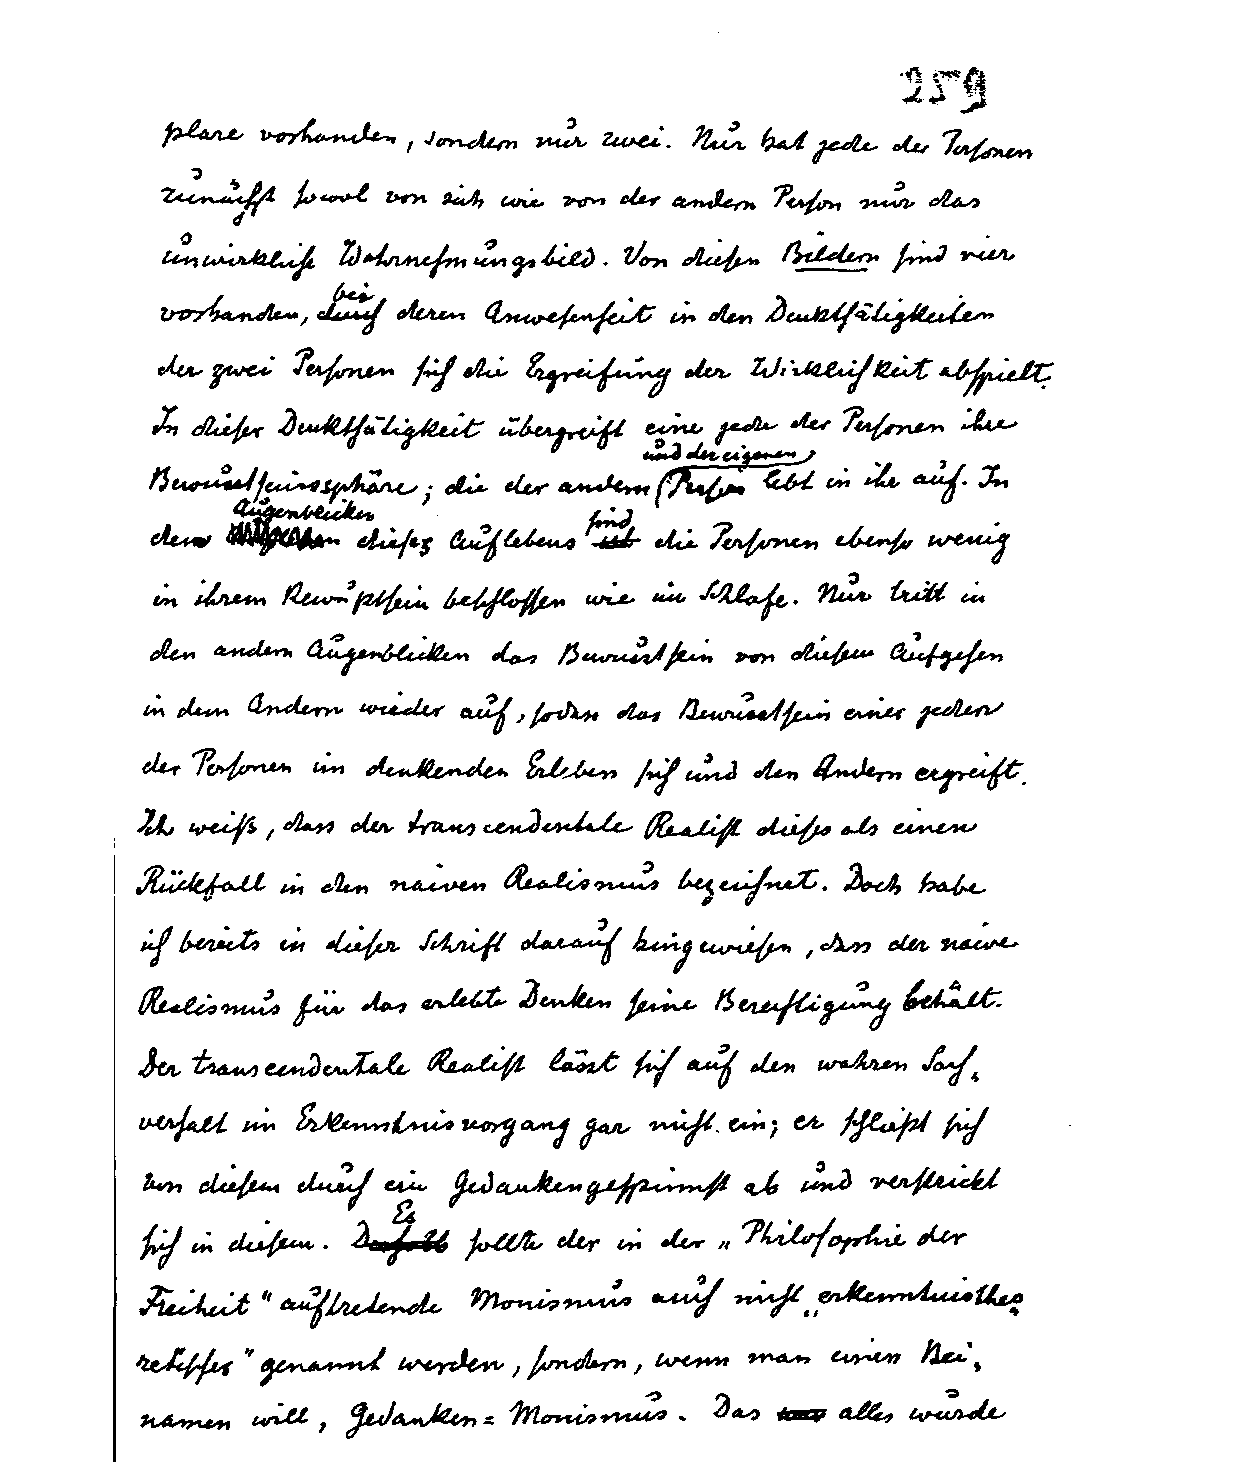 259
plare vorhanden, sondern nur zwei. Nur hat jede der Personen
zunächst sowol von sich wie von der andern Person nur das
unwirkliche Wahrnehmungsbild. Von diesen Bildern sind vier
bei
vorhanden, durch deren Anwesenheit in den Denkthätigkeiten
der zwei Personen sich die Ergreifung der Wirklichkeit abspielt.
In dieser Denkthätigkeit übergreift eine jede der Personen ihre
und der eigenen
Bewusstseinssphäre; die der andern Person lebt in ihr auf. In
Augenblicken sind
den dieses Auflebens ist die Personen ebenso wenig
in ihrem Bewußtsein beschlossen wie im Schlafe. Nur tritt in
den andern Augenblicken das Bewusstsein von diesem Aufgehen
in dem Andern wieder auf, sodass das Bewusstsein einer jeden
der Personen im denkenden Erleben sich und den Andern ergreift.
Ich weiß, dass der transcendentale Realist dieses als einen
Rückfall in den naiven Realismus bezeichnet. Doch habe
ich bereits in dieser Schrift darauf hingewiesen, dass der naive
Realismus für das erlebte Denken seine Berechtigung behält.
Der transcendentale Realist lässt sich auf den wahren Sach-
verhalt im Erkenntnisvorgang gar nicht ein; er schließt sich
von diesem durch ein Gedankengespinnst ab und verstrickt
Es
sich in diesem. Deshalb sollte der in der „Philosophie der
Freiheit" auftretende Monismus auch nicht „erkenntnistheo-
retischer" genannt werden, sondern, wenn man einen Bei-
namen will, Gedanken=Monismus. Das alles wurde